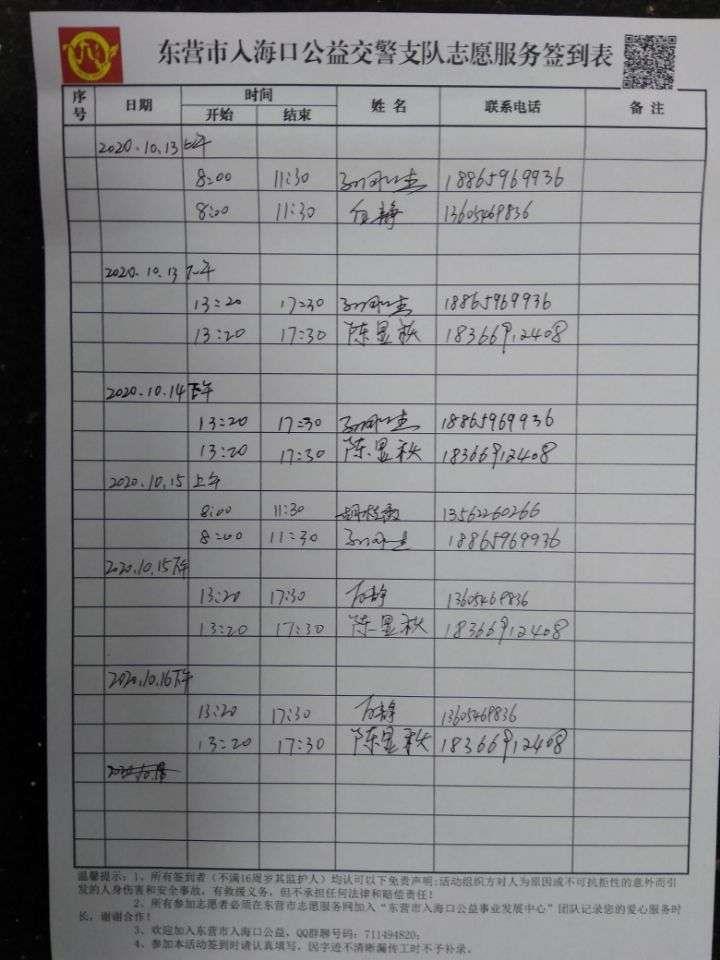 东营市入海口公益交警支队志愿服务签到表
序号 日期 时间 姓名 联系电话 备注
开始 结束
2020.10.13 上午
8:00 11:30 18865969936
8:00 11:30 静 13605469836
2020.10.13 下午
13:20 17:30 18865969936
13:20 17:30 陈显秋 18366912408
2020.10.14 下午
13:20 17:30 18865969936
13:20 17:30 陈显秋 18366912408
2020.10.15 上午
8:00 11:30 13562260266
8:00 11:30 18865969936
2020.10.15 下午
13:20 17:30 静 13605469836
13:20 17:30 陈显秋 18366912408
2020.10.16 下午
13:20 17:30 静 13605469836
13:20 17:30 陈显秋 18366912408
温馨提示:1、所有签到者(不满16周岁其监护人)均认可以下免责声明:活动组织方对人为原因或不可抗拒性的意外而引
发的人身伤害和安全事故,有救援义务,但不承担任何法律和赔偿责任!
2、所有参加志愿者必须在东营市志愿服务网加入“东营市入海口公益事业发展中心”团队记录您的爱心服务时
长,谢谢合作!
3、欢迎加入东营市入海口公益,QQ群聊号码:711494820;
4、参加本活动签到时请认真填写,因字迹不清晰漏传工时不予补录。